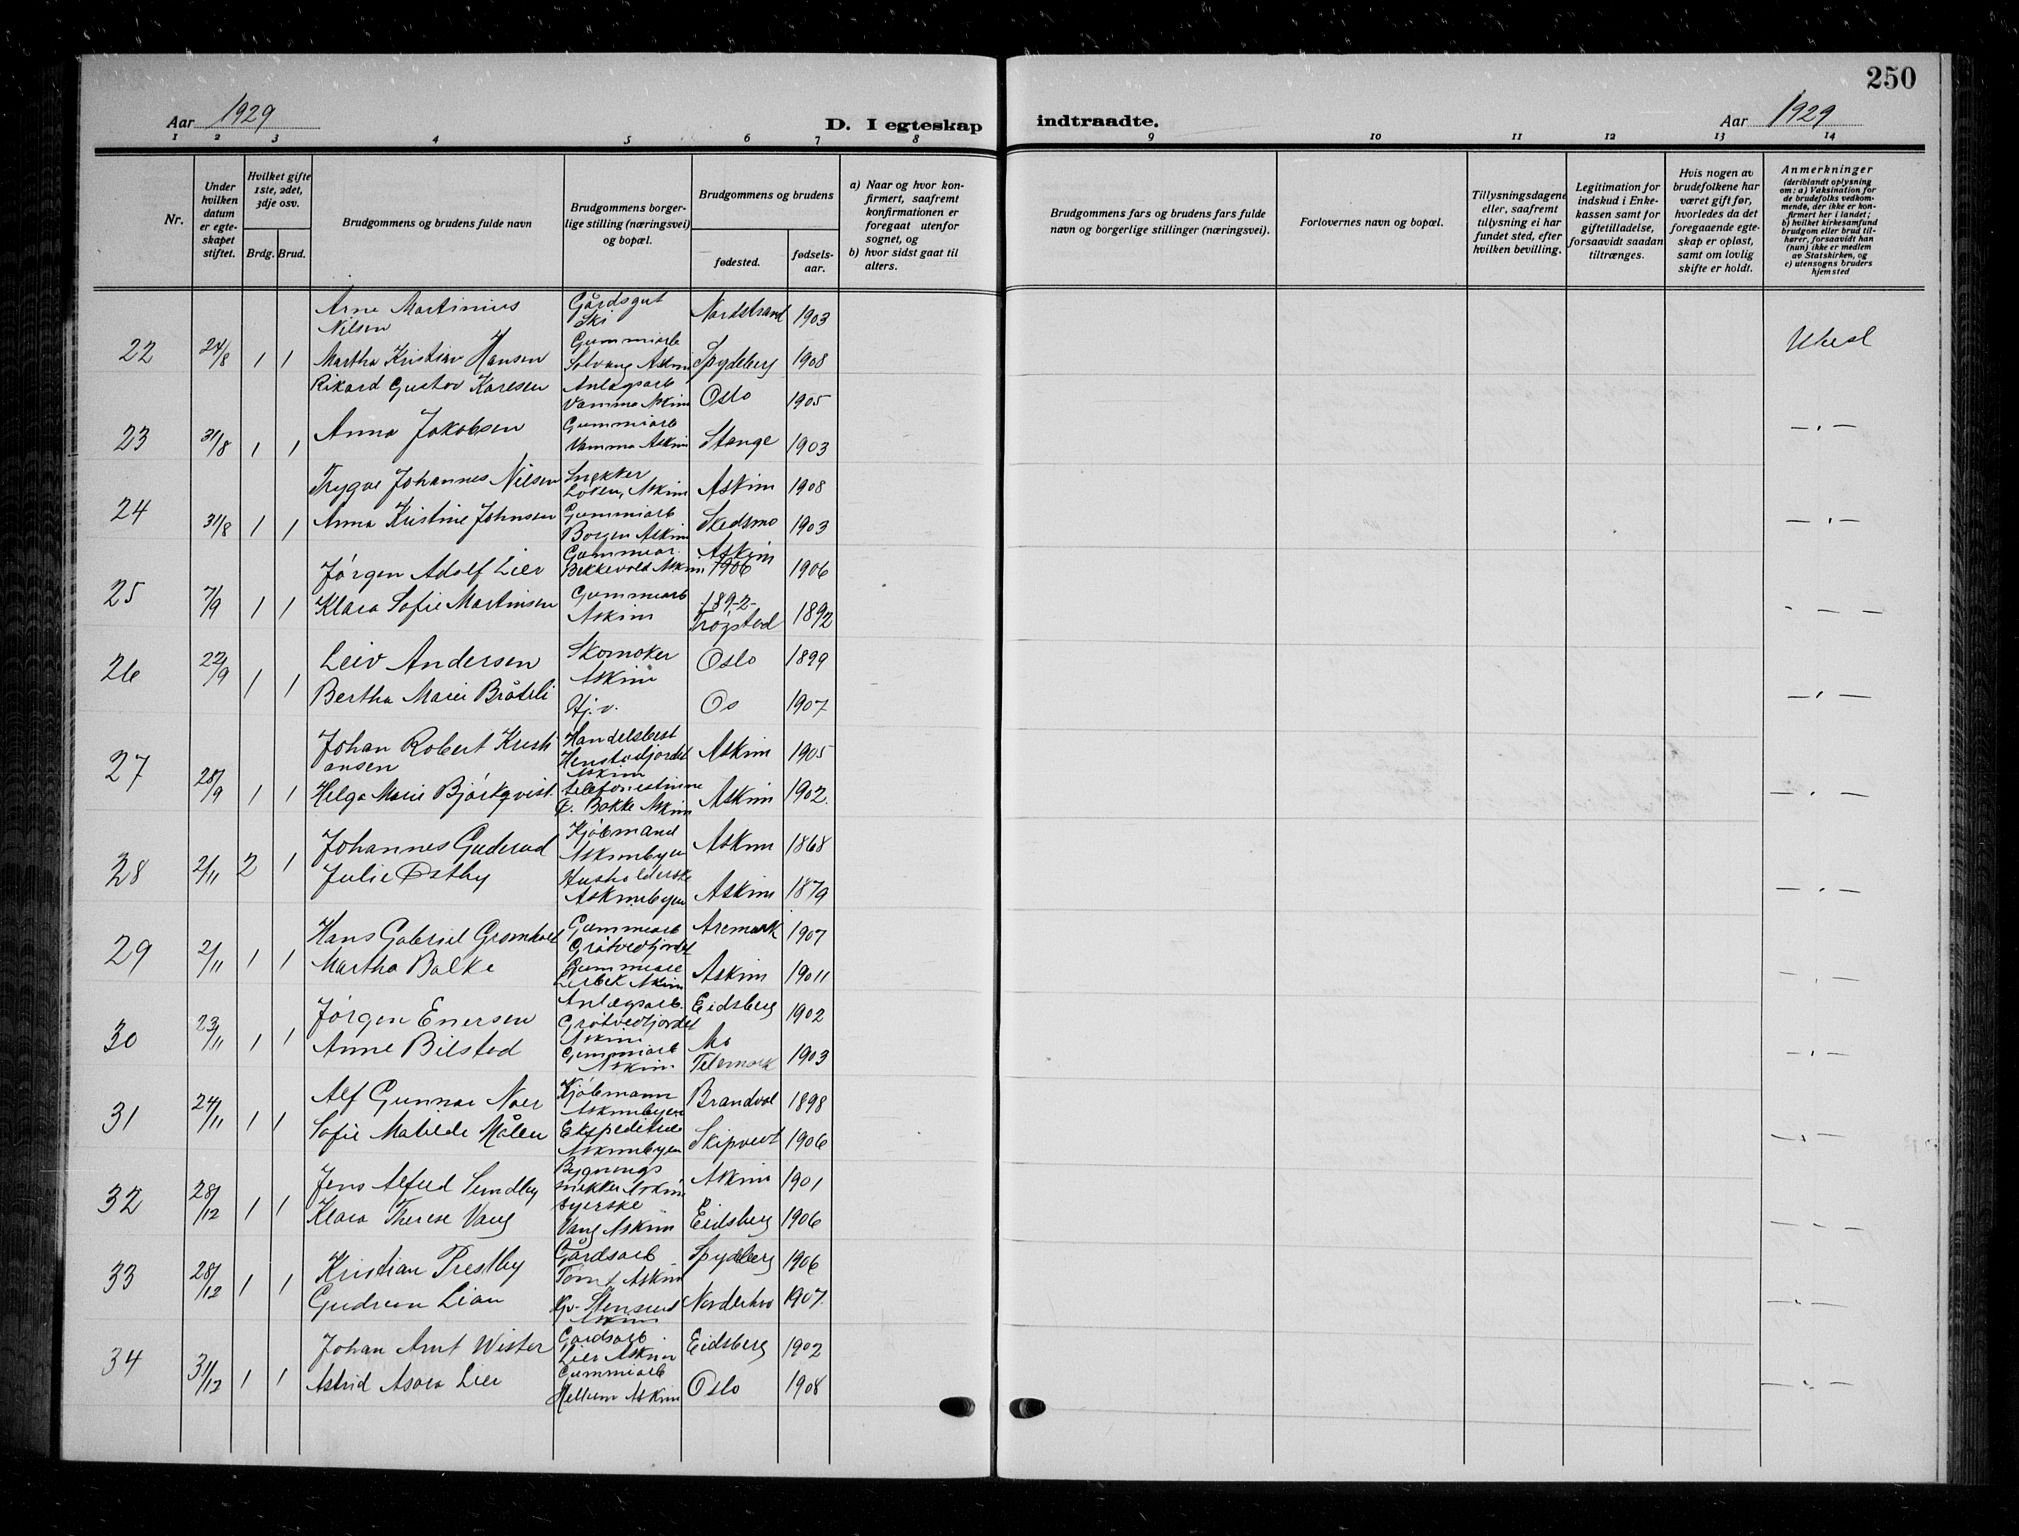 250
Aar 1929
D. I egteskap indtraadte.
Aar 1929
1 2 3 4 5 6 7 8 9 10 11 12 13 14
Nr.
Under hvilken datum er egteskapet stiftet.
Hvilket gifte 1ste, 2det, 3dje osv.
Brdg. Brud.
Brudgommens og brudens fulde navn
Brudgommens borgerlige stilling (næringsvei) og bopæl.
Brudgommens og brudens
fødested.
fødselsaar.
a) Naar og hvor konfirmert, saafremt konfirmationen er foregaat utenfor sognet, og
b) hvor sidst gaat til alters.
Brudgommens fars og brudens fars fulde navn og borgerlige stillinger (næringsvei).
Forlovernes navn og bopæl.
Tillysningsdagene eller, saafremt tillysning ei har fundet sted, efter hvilken bevilling.
Legitimation for indskud i Enkekassen samt for giftetilladelse, forsaavidt saadan tiltrænges.
Hvis nogen av brudefolkene har været gift før, hvorledes da det foregaaende egteskap er opløst, samt om lovlig skifte er holdt.
Anmerkninger
(deriblandt oplysning om: a) Vaksination for de brudefolks vedkommende, der ikke er konfirmert her i landet; b) hvilket kirkesamfund brudgom eller brud tilhører, forsaavidt han (hun) ikke er medlem av Statskirken, og c) utensogns bruders hjemsted
Arne Martinius Nilsen Gårdsgut Ski Nordstrand 1903
22 24/8 1 1 Martha Kristine Hansen Gummiarb Solvang Askim Spydeberg 1908
Rikard Gustav Karlsen Anlægsarb Vamma Askim Oslo 1905
23 31/8 1 1 Anna Jakobsen Gummiarb Vamma Askim Stange 1903 — " —
Trygve Johannes Nilsen Snekker Løken, Askim Askim 1908
24 31/8 1 1 Anna Kristine Johnsen Gummiarb Borgen Askim Skedsmo 1903 — " —
Jørgen Adolf Lier Gummiar. Bekkevold Askim Askim 1906 1906
25 7/9 1 1 Klara Sofie Martinsen Gummiarb Askim 1892 Trøgstad 1892 — " —
26 22/9 1 1 Leiv Andersen Skomaker Askim Oslo 1899
Bertha Marie Bråteli Hj. v. Os 1907 — " —
Johan Robert Kristiansen Handelsbest Henstadfjordet Askim Askim 1905
27 28/9 1 1 Helga Marie Bjørkqvist telefonistinne Askim Askim 1902. — " —
Johannes Guderud Kjøbmand Askimbyen Askim 1868
28 2/11 2 1 Julie Østby Husholderske Askimbyen Askim 1879 — " —
Hans Gabriel Gromholt Gummiarb Grøtvedtjordet Aremark 1907
29 2/11 1 1 Martha Bakke Gummiarb Askim Askim 19011 — " —
Jørgen Enersen Anlægsarb. Grøtvedtjordet Askim Eidsberg 1902
30 23/11 1 1 Anne Bilstad Gummiarb Askim Mo Telemark 1903 — " —
Alf Gunnar Noer Kjøbmann Askimbyen Brandval 1898
31 24/11 1 1 Sofie Matilde Målen Askimbyen Skiptvedt 1906 — " —
Jens Alfred Sundby Bygningssnekker Askim Askim 1901
32 28/12 1 1 Klara Therese Vang Syerske Vang Askim Eidsberg 1906 — " —
Kristian Prestby Gårdsarb Askim Spydeberg 1906
33 28/12 1 1 Gudrun Lian Stensrud Askim Norderhov 1907. — " —
Johan Arnt Wister Gardsarb. Lier Askim Eidsberg 1902
34 31/12 1 1 Astrid Asora Lier Gummiarb Hellum Askim Oslo 1908 — " —